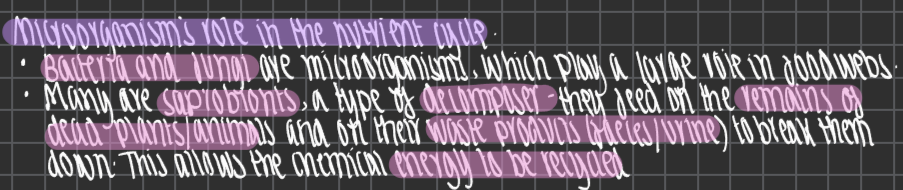 Microorganism's role in the nutrient cycle.
• Bacteria and fungi are microorganisms, which play a large role in foodwebs.
• Many are saprobionts, a type of decomposer - they feed on the remains of
dead plants/animals and on their waste products (faeces/urine) to break them
down. This allows the chemical energy to be recycled